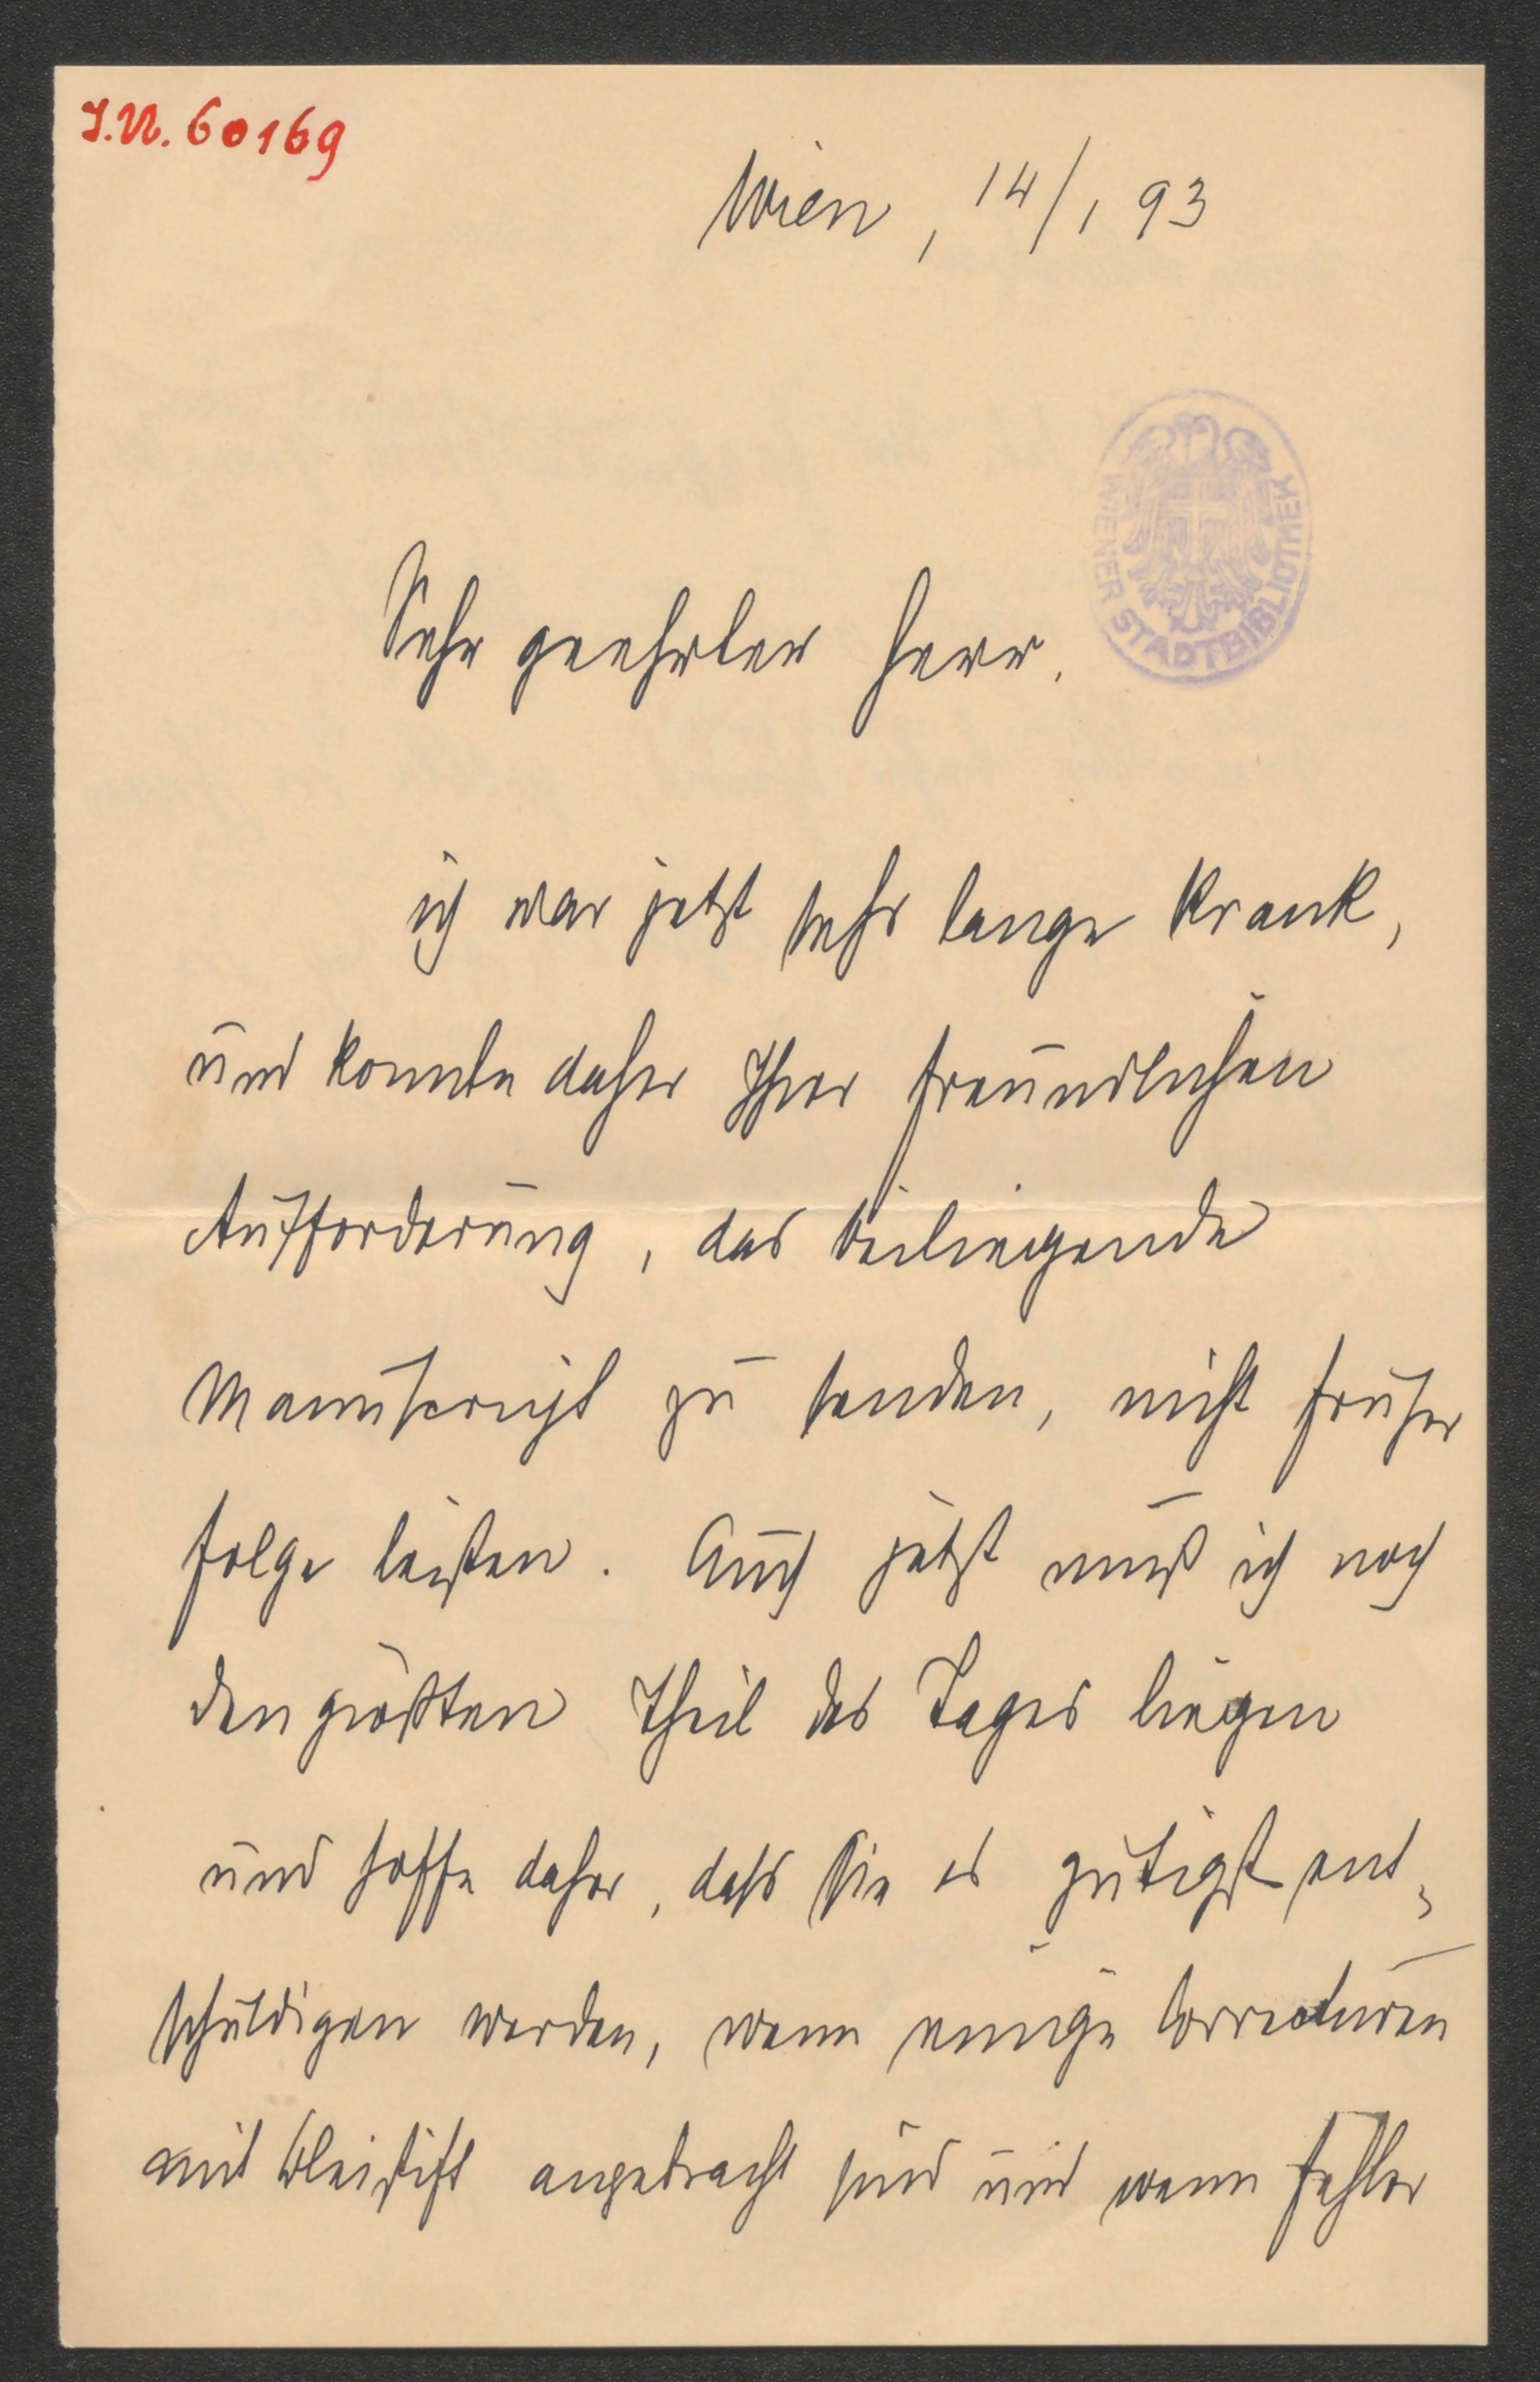 J.N. 60169
Wien, 14/1 93
WIENER STADTBIBLIOTHEK
Sehr geehrter Herr.
ich war jetzt sehr lange krank,
und konnte daher Ihrer freundlichen
Aufforderung, das beiliegende
Manuscript zu senden, nicht früher
Folge leisten. Auch jetzt muß ich noch
den größten Theil des Tages liegen
und hoffe daher, dass Sie es gütigst ent-
schuldigen werden, wenn einige Correcturen
mit Bleistift angebracht sind und wenn Fehler